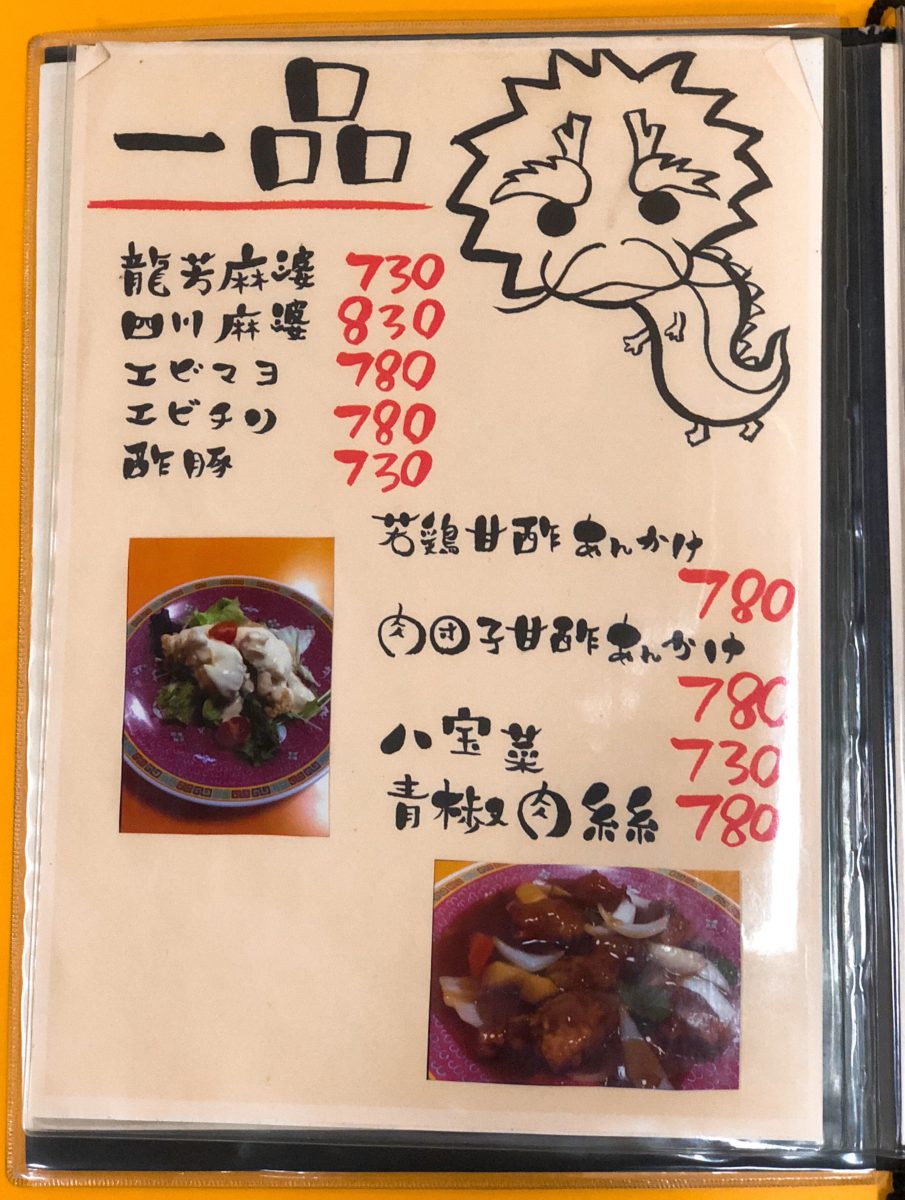 一品
龍芳麻婆 730
四川麻婆 830
エビマヨ 780
エビチリ 780
酢豚 730
若鶏甘酢あんかけ
780
肉団子甘酢あんかけ
780
八宝菜 730
青椒肉絲 780